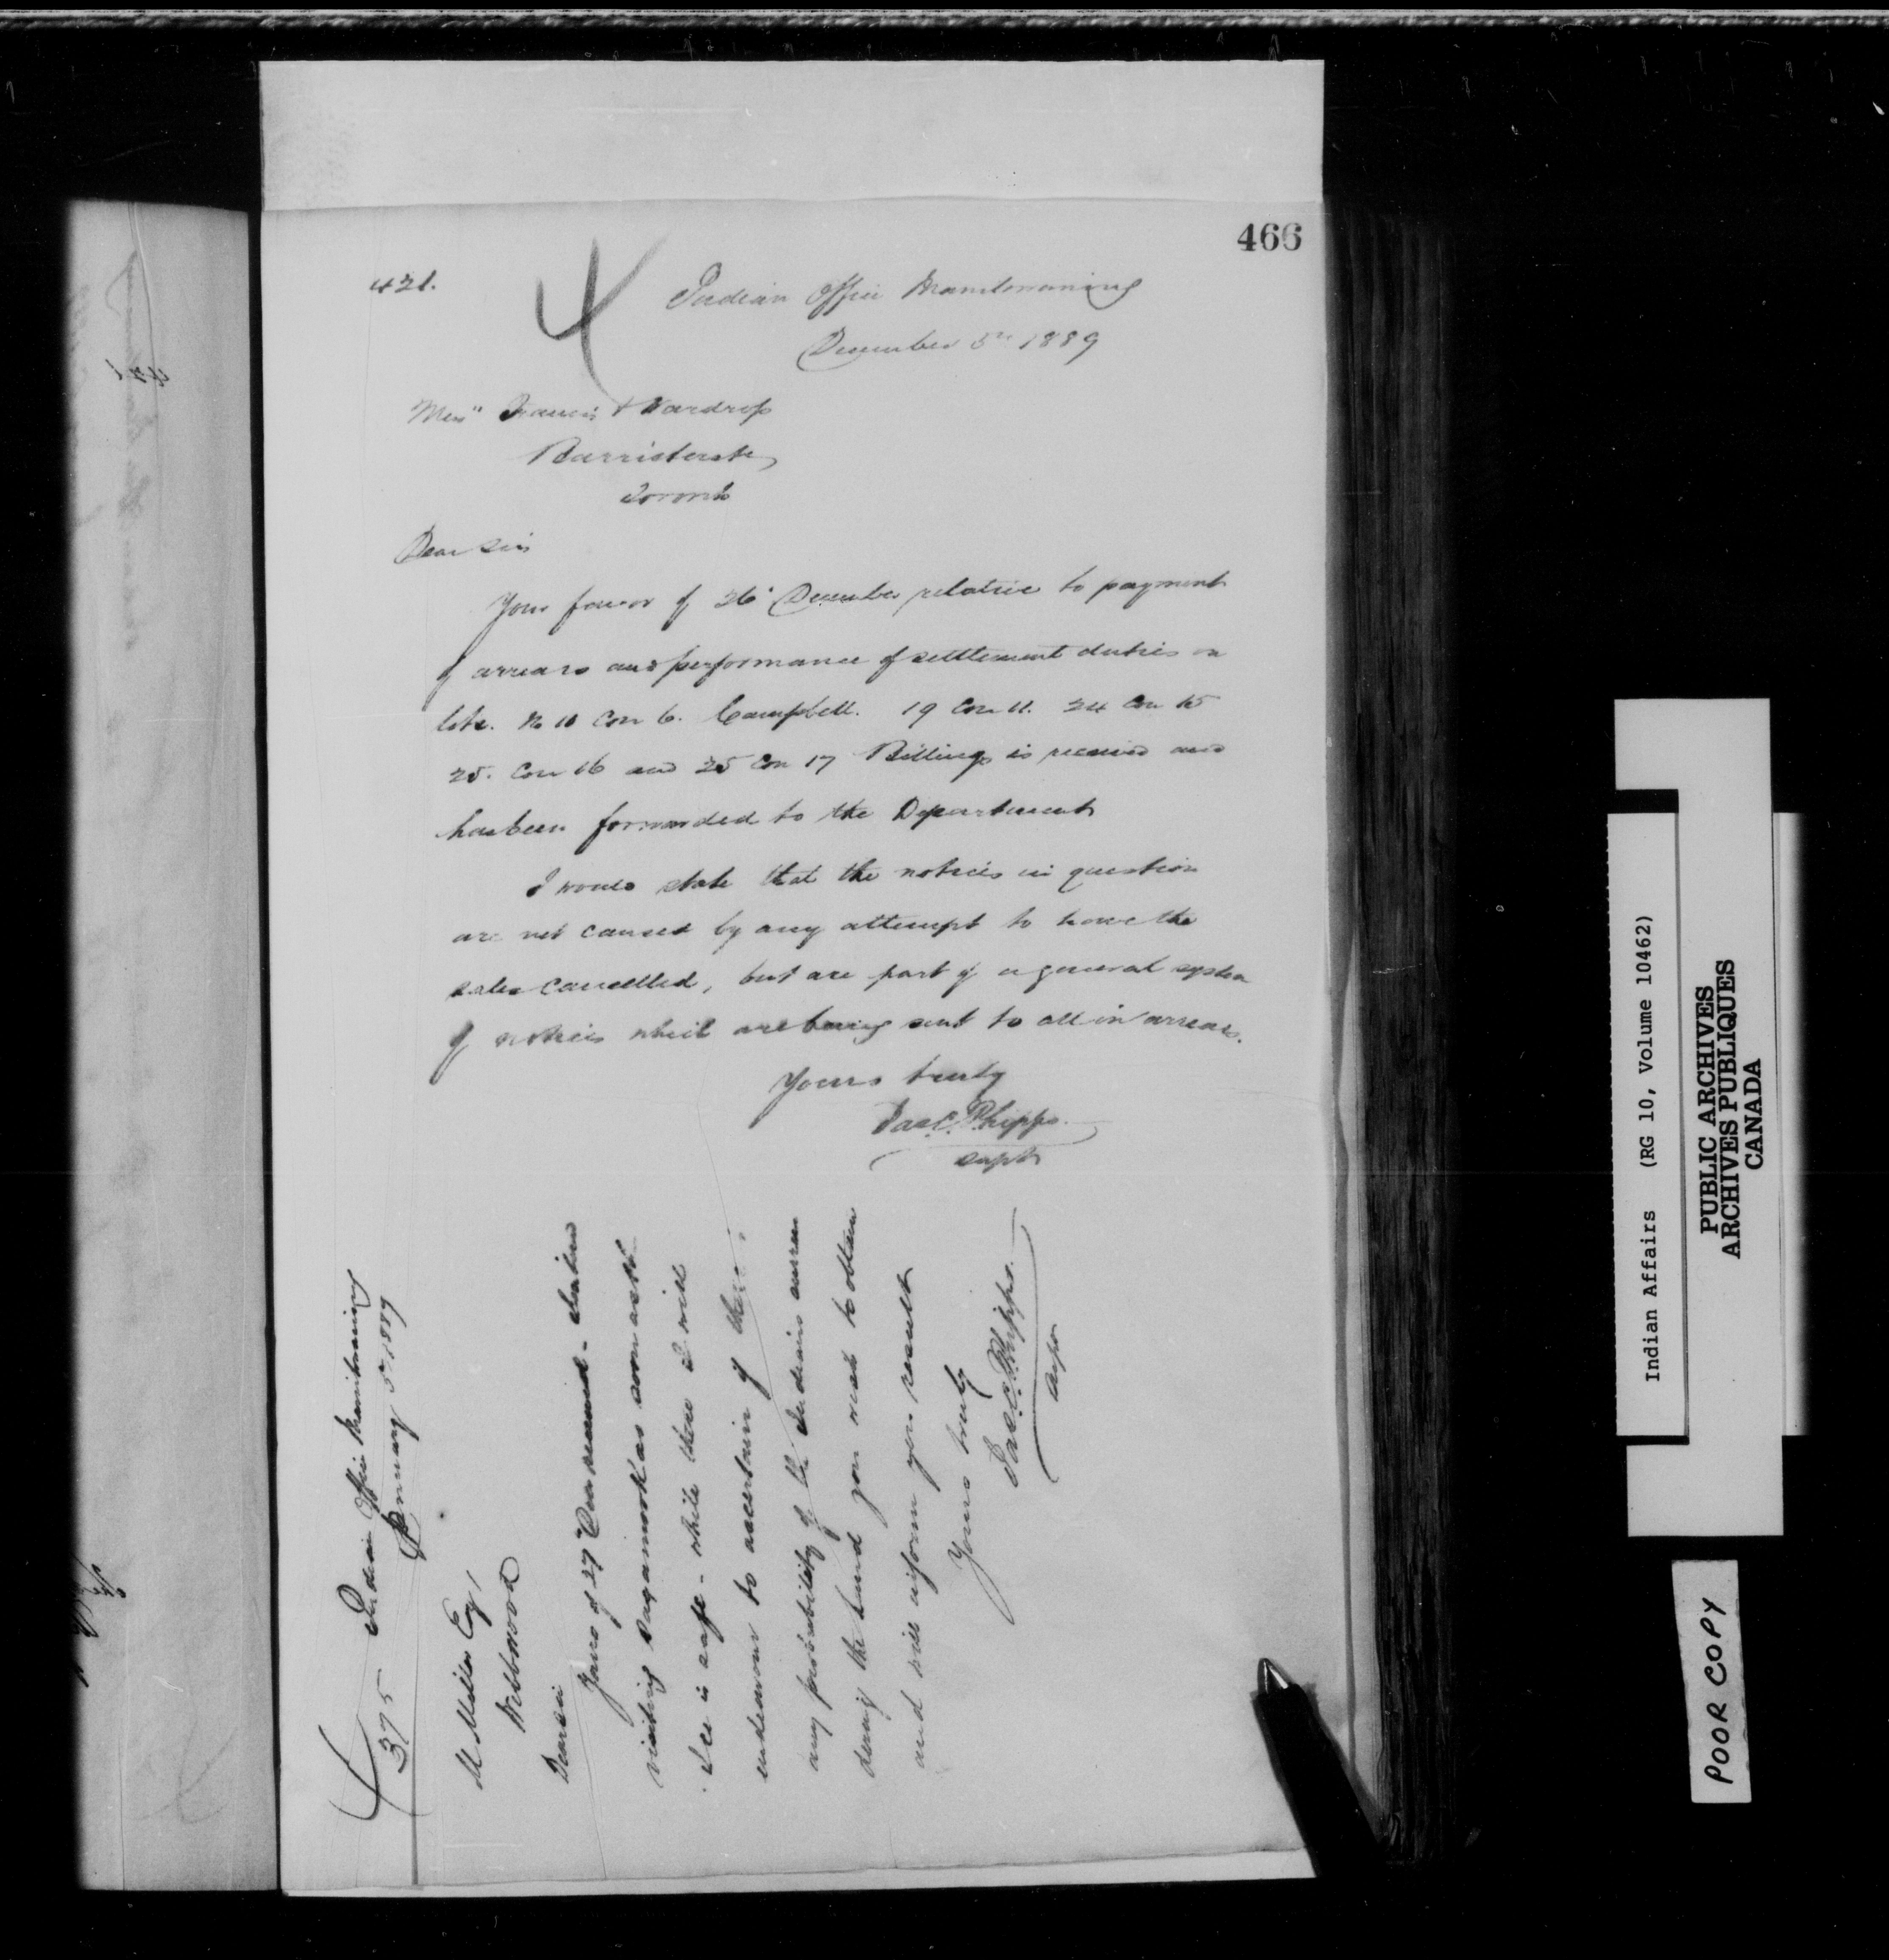 466
421.
4
Indian Office Manitowaning
December 5th 1889
Mess" Francis & Wardrop
Barristers &c
Toronto
Dear Sirs
Your favor of 26" December relative to payment
of arrears and performance of settlement duties on
lots. No 10 Con 6. Campbell. 19 Con 11. 24 Con 15
25. Con 16 and 25 Con 17 Billings is received and
has been forwarded to the Department
I would state that the notices in question
are not caused by any attempt to have the
sales cancelled, but are part of a general system
of notices which are being sent to all in arrears.
Yours truly
Jas C. Phipps.
Supt
375
Indian Office Manitowaning
January 5th 1889
M Miller Esq
Dear Sir
Yours of 27" Dec received.
visiting Sagamook as soon as the
Ice is safe - while there I will
endeavour to ascertain if there is
any possibility of the Indians
the land you wish to obtain
and will inform you result
Yours truly
Jas C. Phipps.
Supt
Indian Affairs (RG 10, Volume 10462)
PUBLIC ARCHIVES
ARCHIVES PUBLIQUES
CANADA
POOR COPY